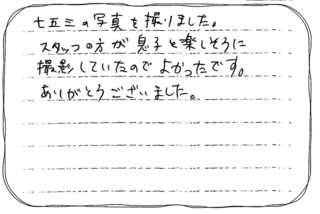 七五三の写真を撮りました。
スタッフの方が息子と楽しそうに
撮影していたのでよかったです。
ありがとうございました。